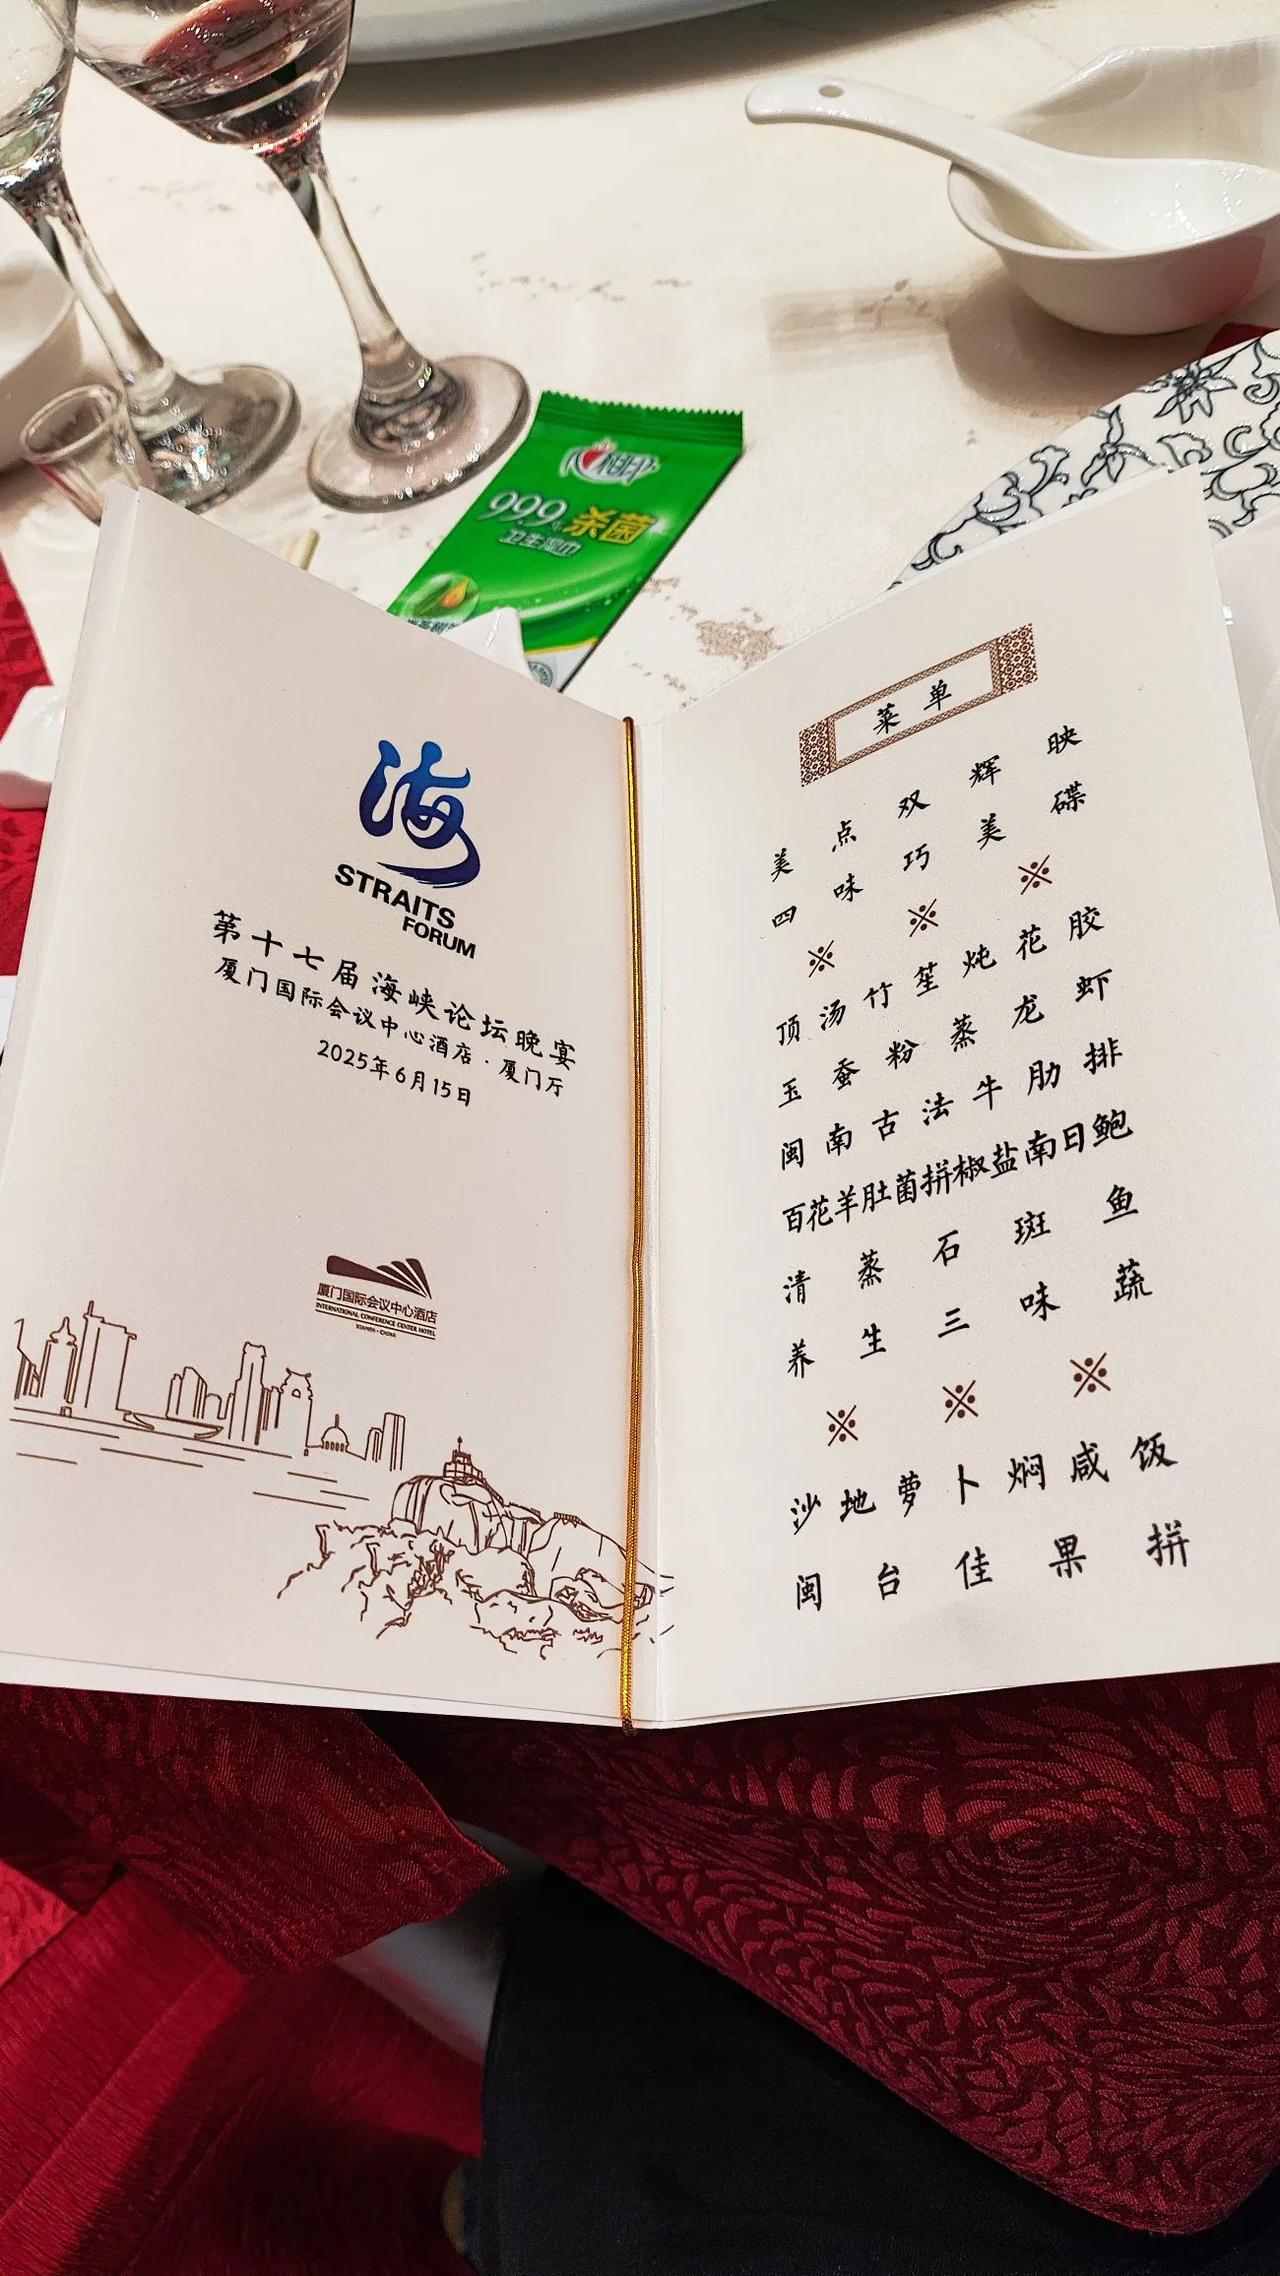 心相印
999‰杀菌
卫生湿巾
海
STRAITS
FORUM
第十七届海峡论坛晚宴
厦门国际会议中心酒店·厦门厅
2025年6月15日
厦门国际会议中心酒店
INTERNATIONAL CONFERENCE CENTER HOTEL
XIAMEN·CHINA
菜单
美点双辉映
四味巧美碟
※ ※ ※
顶汤竹笙炖花胶
玉蚕粉蒸龙虾
闽南古法牛肋排
百花羊肚菌拼椒盐南日鲍
清蒸石斑鱼
养生三味蔬
※ ※ ※
沙地萝卜焖咸饭
闽台佳果拼